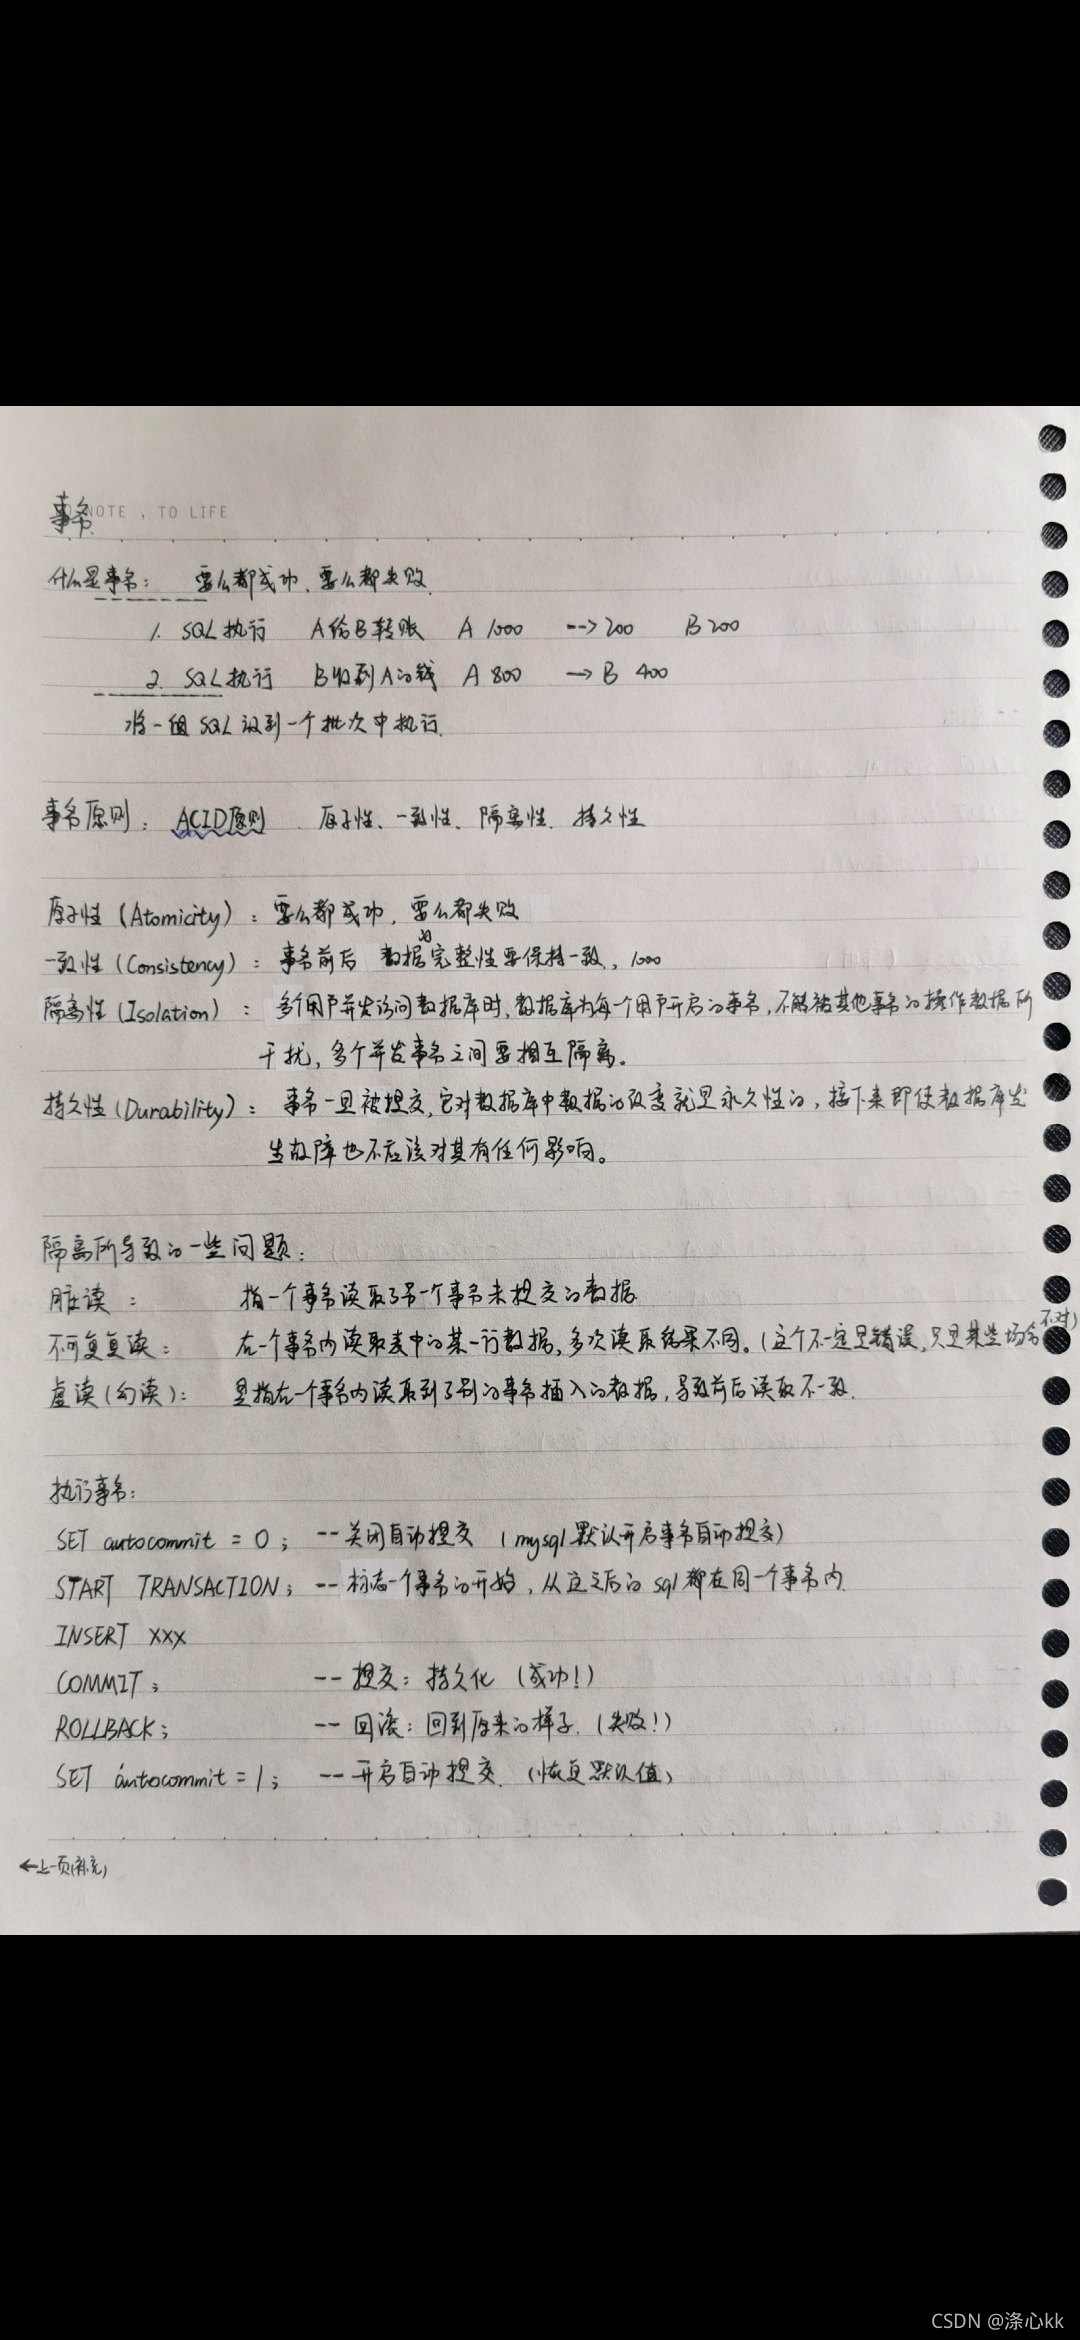 事务
NOTE , TO LIFE
什么是事务： 要么都成功、要么都失败
1. SQL执行 A给B转账 A 1000 --> 200 B 200
2. SQL执行 B收到A的钱 A 800 —> B 400
将一组SQL放到一个批次中执行
事务原则： ACID原则 原子性、一致性、隔离性、持久性
原子性（Atomicity）：要么都成功，要么都失败
一致性（Consistency）：事务前后 数据的完整性要保持一致、1000
隔离性（Isolation）： 多个用户并发访问数据库时，数据库为每一个用户开启的事务，不能被其他事务的操作数据所
干扰，多个并发事务之间要相互隔离。
持久性（Durability）： 事务一旦被提交，它对数据库中数据的改变就是永久性的，接下来即使数据库发
生故障也不应该对其有任何影响。
隔离所导致的一些问题：
脏读： 指一个事务读取了另一个事务未提交的数据
不可重复读： 在一个事务内读取表中的某一行数据，多次读取结果不同。（这个不一定是错误，只是某些场合不对）
虚读（幻读）： 是指在一个事务内读取到了别的事务插入的数据，导致前后读取不一致.
执行事务：
SET autocommit = 0； -- 关闭自动提交 （mysql默认开启事务自动提交）
START TRANSACTION； -- 标志一个事务的开始，从这之后的sql都在同一个事务内
INSERT XXX
COMMIT； -- 提交：持久化（成功！）
ROLLBACK； -- 回滚：回到原来的样子.（失败！）
SET autocommit = 1； -- 开启自动提交.（恢复默认值）
←上一页（补充）
CSDN @涤心kk